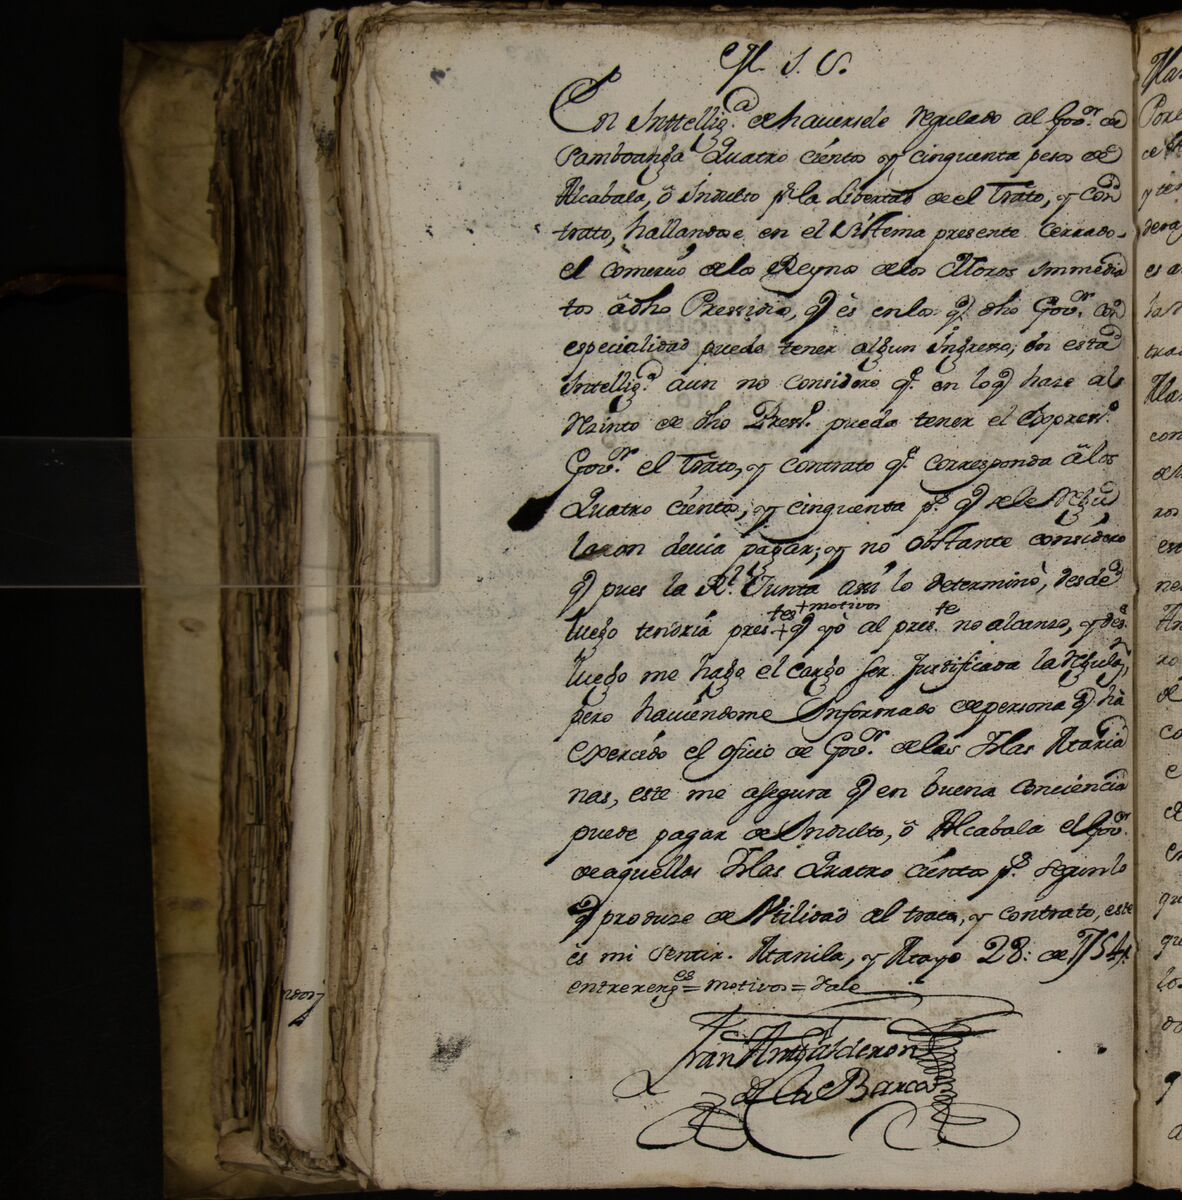 M. I. S.
En Inttelligª. de haversele regulado al Govºr. de
Samboanga Quatro cientos y cinquenta pesos de
Alcabala, ô Indulto pr. la Libertad de el Trato, y con
trato, hallandose en el sistema presente Cerrado
el comercio de los Reynos de los Moros immedia
tos â dho Pressidio, q̃ ès en los q̃. dho Govºr. con
especialidad puede tener algun Ingreso; en esta
Intelligª. aun no considero qe. en lo q̃ hase al
Rezinto de dho Pressº. pueda tener el Expressº.
Govºr. el Trato, y contrato qe. corresponda â los
Quatro cientos, y cinquenta ps. q̃ se le regu
laron devia pagar; y no obstante considero
q̃ pues la Rl. Junta assi lo determinò, desde
+ motivos
luego tendria prestes + q̃ yò al preste. no alcanso, y des
luego me hago el cargo ser Justificada la regulaºn,
pero haviendome Informado de persona q̃ hà
exercido el oficio de Govºr. de las Islas Maria
nas, este me asegura q̃ en buena conciencia
puede pagar de Indulto, ô Alcabala el Govºr.
de aquellas Islas Quatro cientos ps. segun lo
q̃ produze de Utilidad el trato, y contrato, este
ès mi sentir. Manila, y Mayo 28: de 1754,
entrerenges = motivos = vale
Fran Antt Calderon
de la Barca